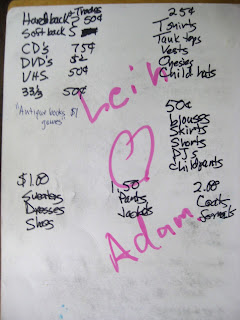 Hardback > Trades
Softback > 50¢
CD's 75¢
DVD's $2
VHS 50¢
33⅓ 50¢
"Antique books $1
games"
25¢
T shirts
Tank tops
Vests
Onesies
Child hats
50¢
blouses
Skirts
Shorts
PJs
child pants
$1.00
Sweaters
Dresses
Shoes
1.50
Pants
Jackets
2.00
Coats
Formals
Leih
Adam